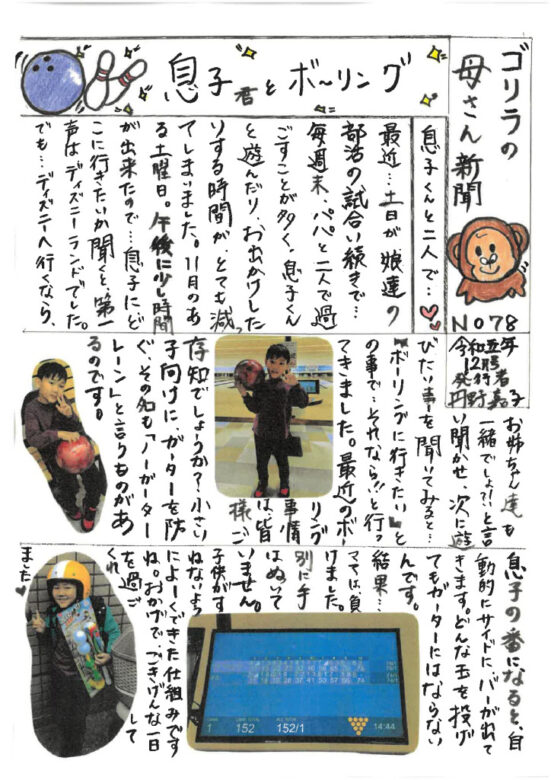 ゴリラの
母さん新聞
No78
令和五年
12月号
発行者
丹野嘉子
息子君とボーリング
息子くんと二人で…
最近…土日が娘達の
部活の試合い続きで…
毎週末、パパと二人で過
ごすことが多く、息子くん
と遊んだり、お出かけした
りする時間が、とても減っ
てしまいました。11月のあ
る土曜日。午後に少し時間
が出来たので…息子にど
こに行きたいか聞くと、第一
声はディズニーランドでした。
でも…ディズニーへ行くなら、
お姉ちゃん達も
一緒でしょ?!と言
い聞かせ、次に遊
びたい事を聞いてみると…
「ボーリングに行きたい」と
の事で…それなら!!と行っ
てきました。最近のボー
リング
事情
は、皆
様ご
存知でしょうか?小さい
子向けに、ガーターを防
ぐ、その名も「ノーガーター
レーン」と言うものがあ
るのです。
息子の番になると、自
動的にサイドに、バーが出て
きます。どんな玉を投げ
てもガーターにはならない
んです。
結果…
ママは、負
けました。
別に手
はぬいて
いません。
子供がす
ねないよう
によーくできた仕組みです
ね。おかげで、ごきげんな一日
を過ご
して
くれ
ました
1
152
152/1
14:44